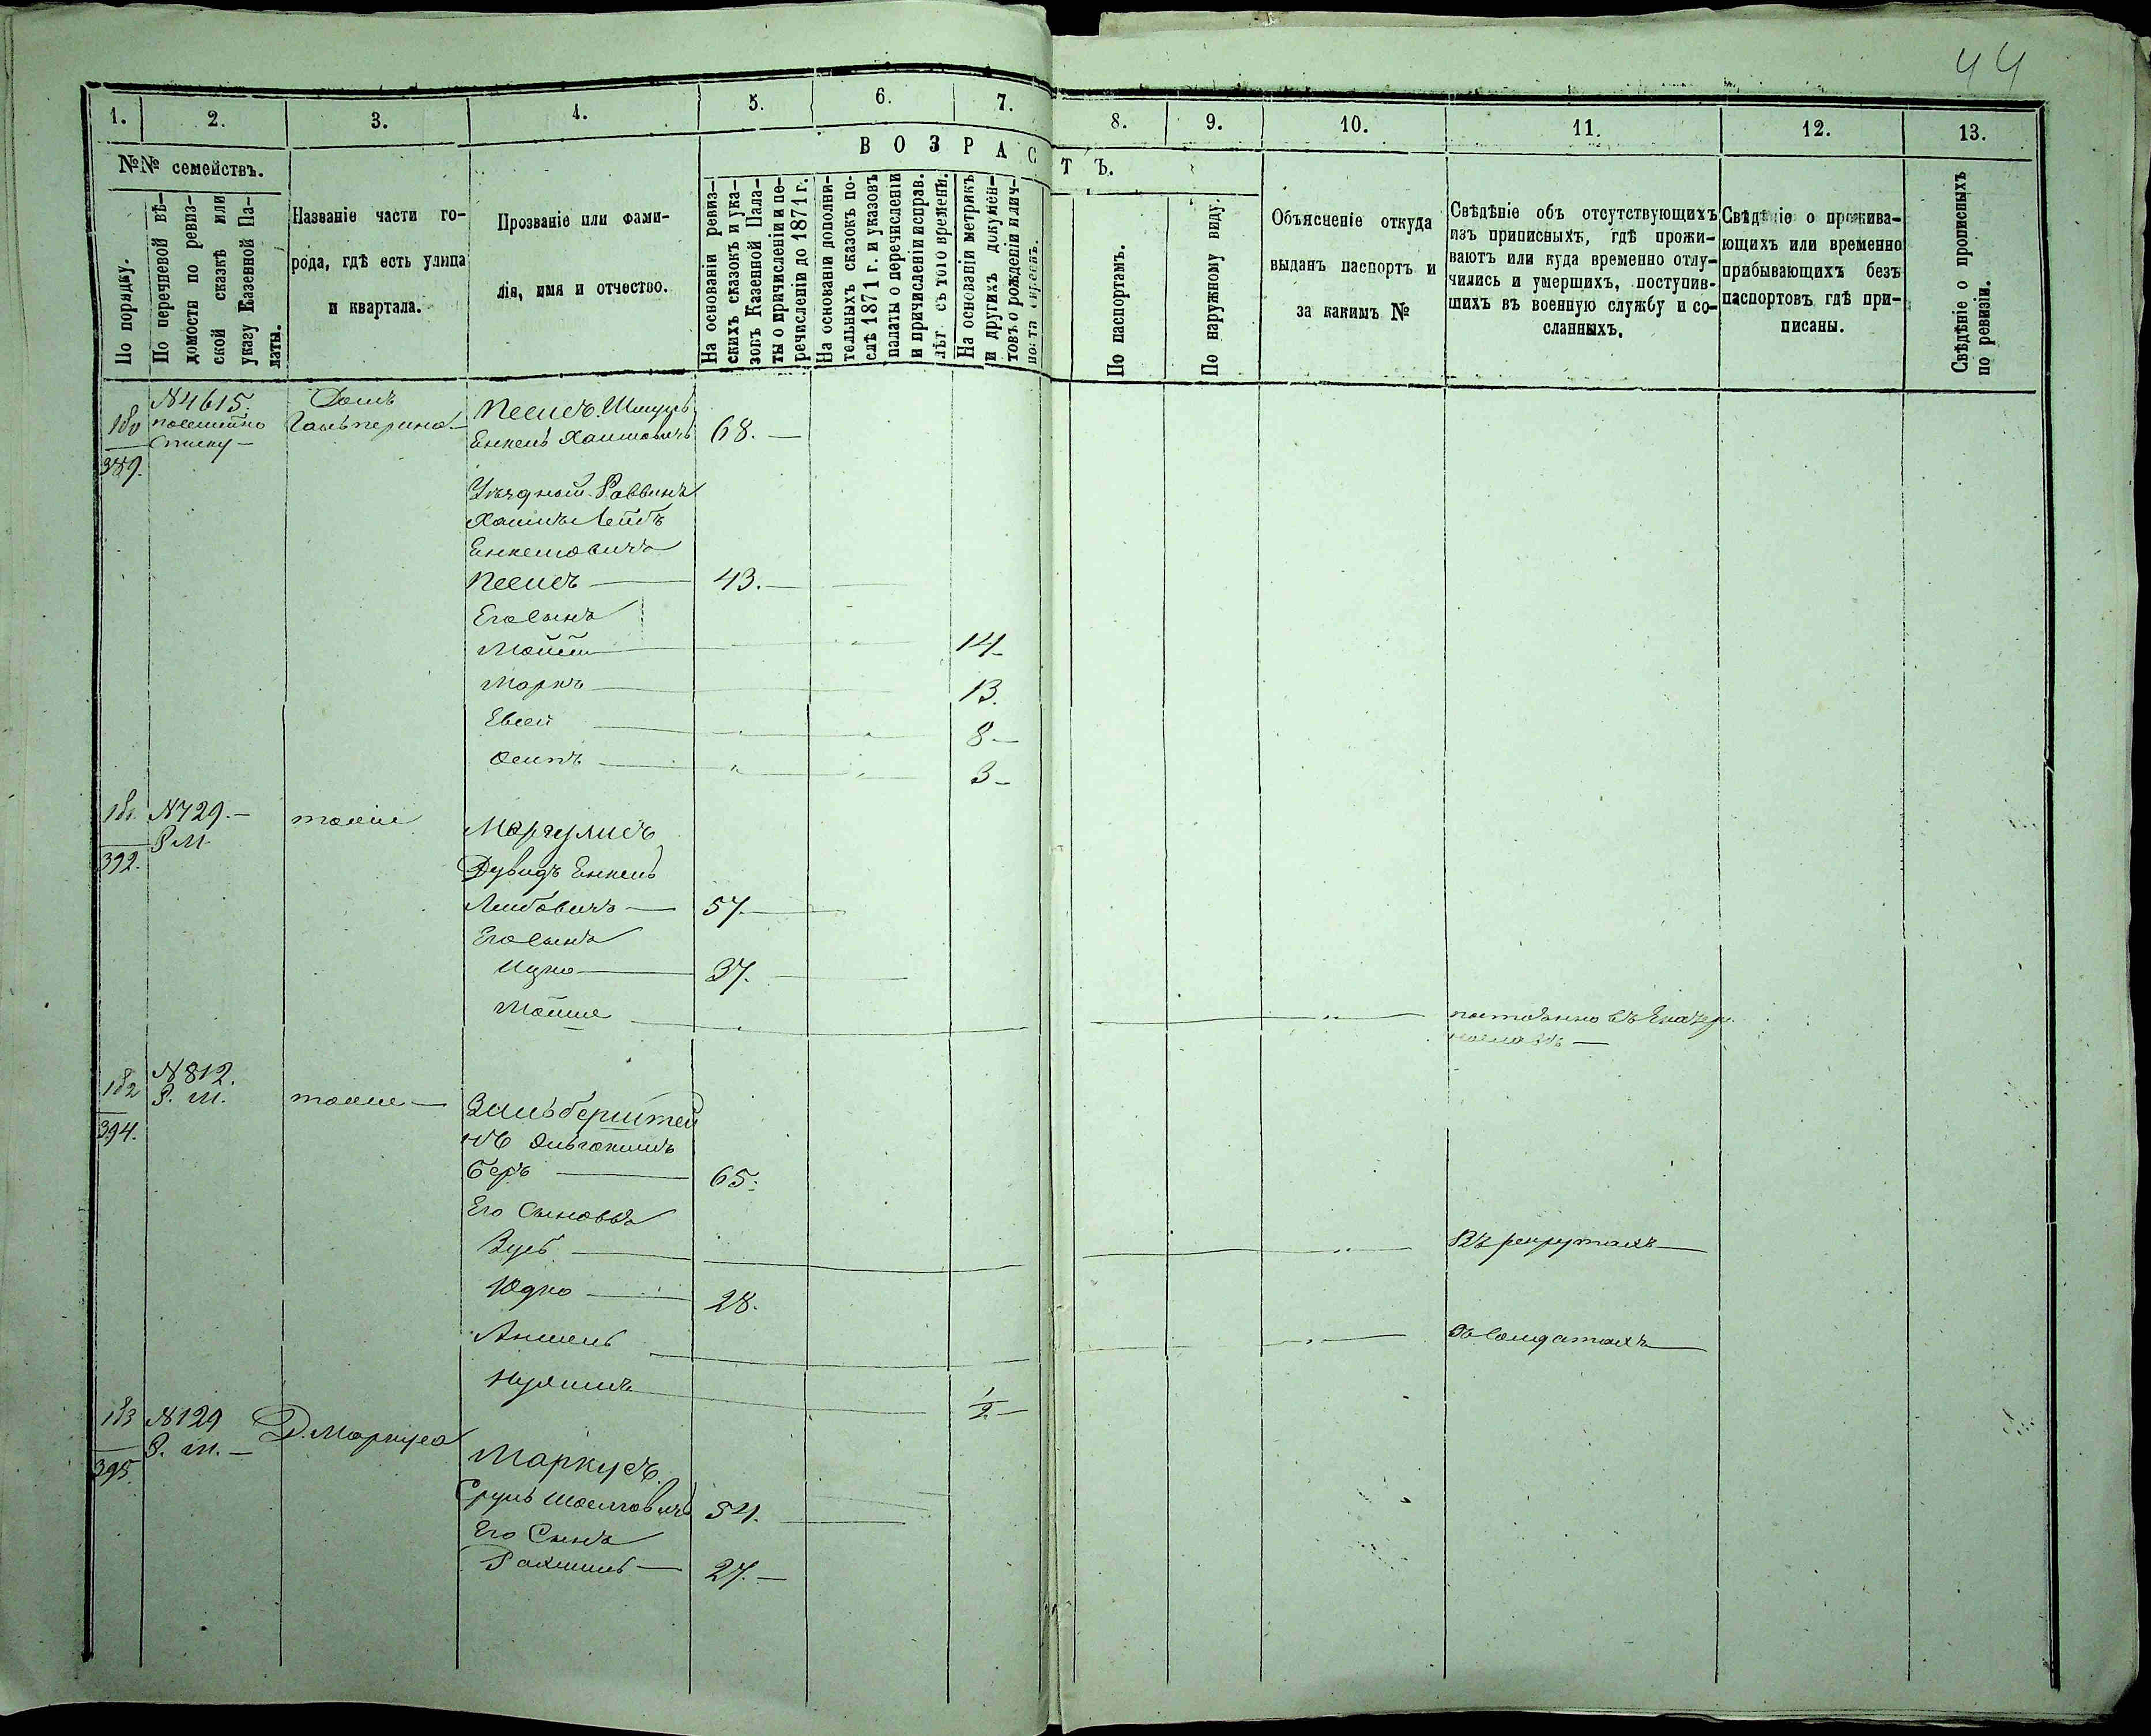 44
1. 2. 3. 4. 5. 6. 7. 8. 9. 10. 11. 12. 13.
№№ семействъ.
По порядку.
По перечневой вѣ-
домости по ревиз-
ской сказкѣ или
указу Казенной Па-
латы.
Названіе части го-
рода, гдѣ есть улица
и квартала.
Прозваніе или фами-
лія, имя и отчество.
ВОЗРАСТЪ.
На основаніи ревиз-
скихъ сказокъ и ука-
зовъ Казенной Пала-
ты о причисленіи и пе-
речисленіи до 1871 г.
На основаніи дополни-
тельныхъ сказокъ по-
слѣ 1871 г. и указовъ
палаты о перечисленіи
и причисленіи исправ.
лѣт. съ того времени.
На основаніи метрикъ
и другихъ докумен-
товъ о рожденіи и лич-
По паспортамъ.
По наружному виду.
Объясненіе откуда
выданъ паспортъ и
за какимъ №
Свѣдѣніе объ отсутствующихъ
изъ приписныхъ, гдѣ прожи-
ваютъ или куда временно отлу-
чились и умершихъ, поступив-
шихъ въ военную службу и со-
сланныхъ.
Свѣдѣніе о прожива-
ющихъ или временно
прибывающихъ безъ
паспортовъ гдѣ при-
писаны.
Свѣдѣніе о прописныхъ
по ревизіи.
180
389.
№ 4615.
посемейно
списку —
Домъ
Гальперина —
Песисъ Шмуль
Енкель Хаимовичъ 68. —
Уѣздный Раввинъ
Хаимъ Лейбъ
Енкелевичъ
Песисъ — 43. —
Его Сынъ
Мойше — 14 —
Маркъ — 13.
Евсей — 8 —
Осипъ — 3 —
181.
392.
№ 729. —
Р. М.
тоже
Маргулисъ
Дувидъ Енкель
Лейбовичъ — 57. —
Его Сынъ
Ицко — 37. —
Мойше — " — постоянно въ Екатер.
182
394.
№ 812.
Р. М.
тоже —
Зильберштей
нъ
Беръ — 65.
Его Сыновья
Зусь — " — Въ рекрутахъ —
Юдко — 28.
Аншель — " — Въ Солдатахъ —
Нухимъ — 1/2 —
183
395.
№ 129
Р. М. —
Д. Маркуса
Маркусъ.
Сруль 54. —
Его Сынъ
Рахмиль — 27. —